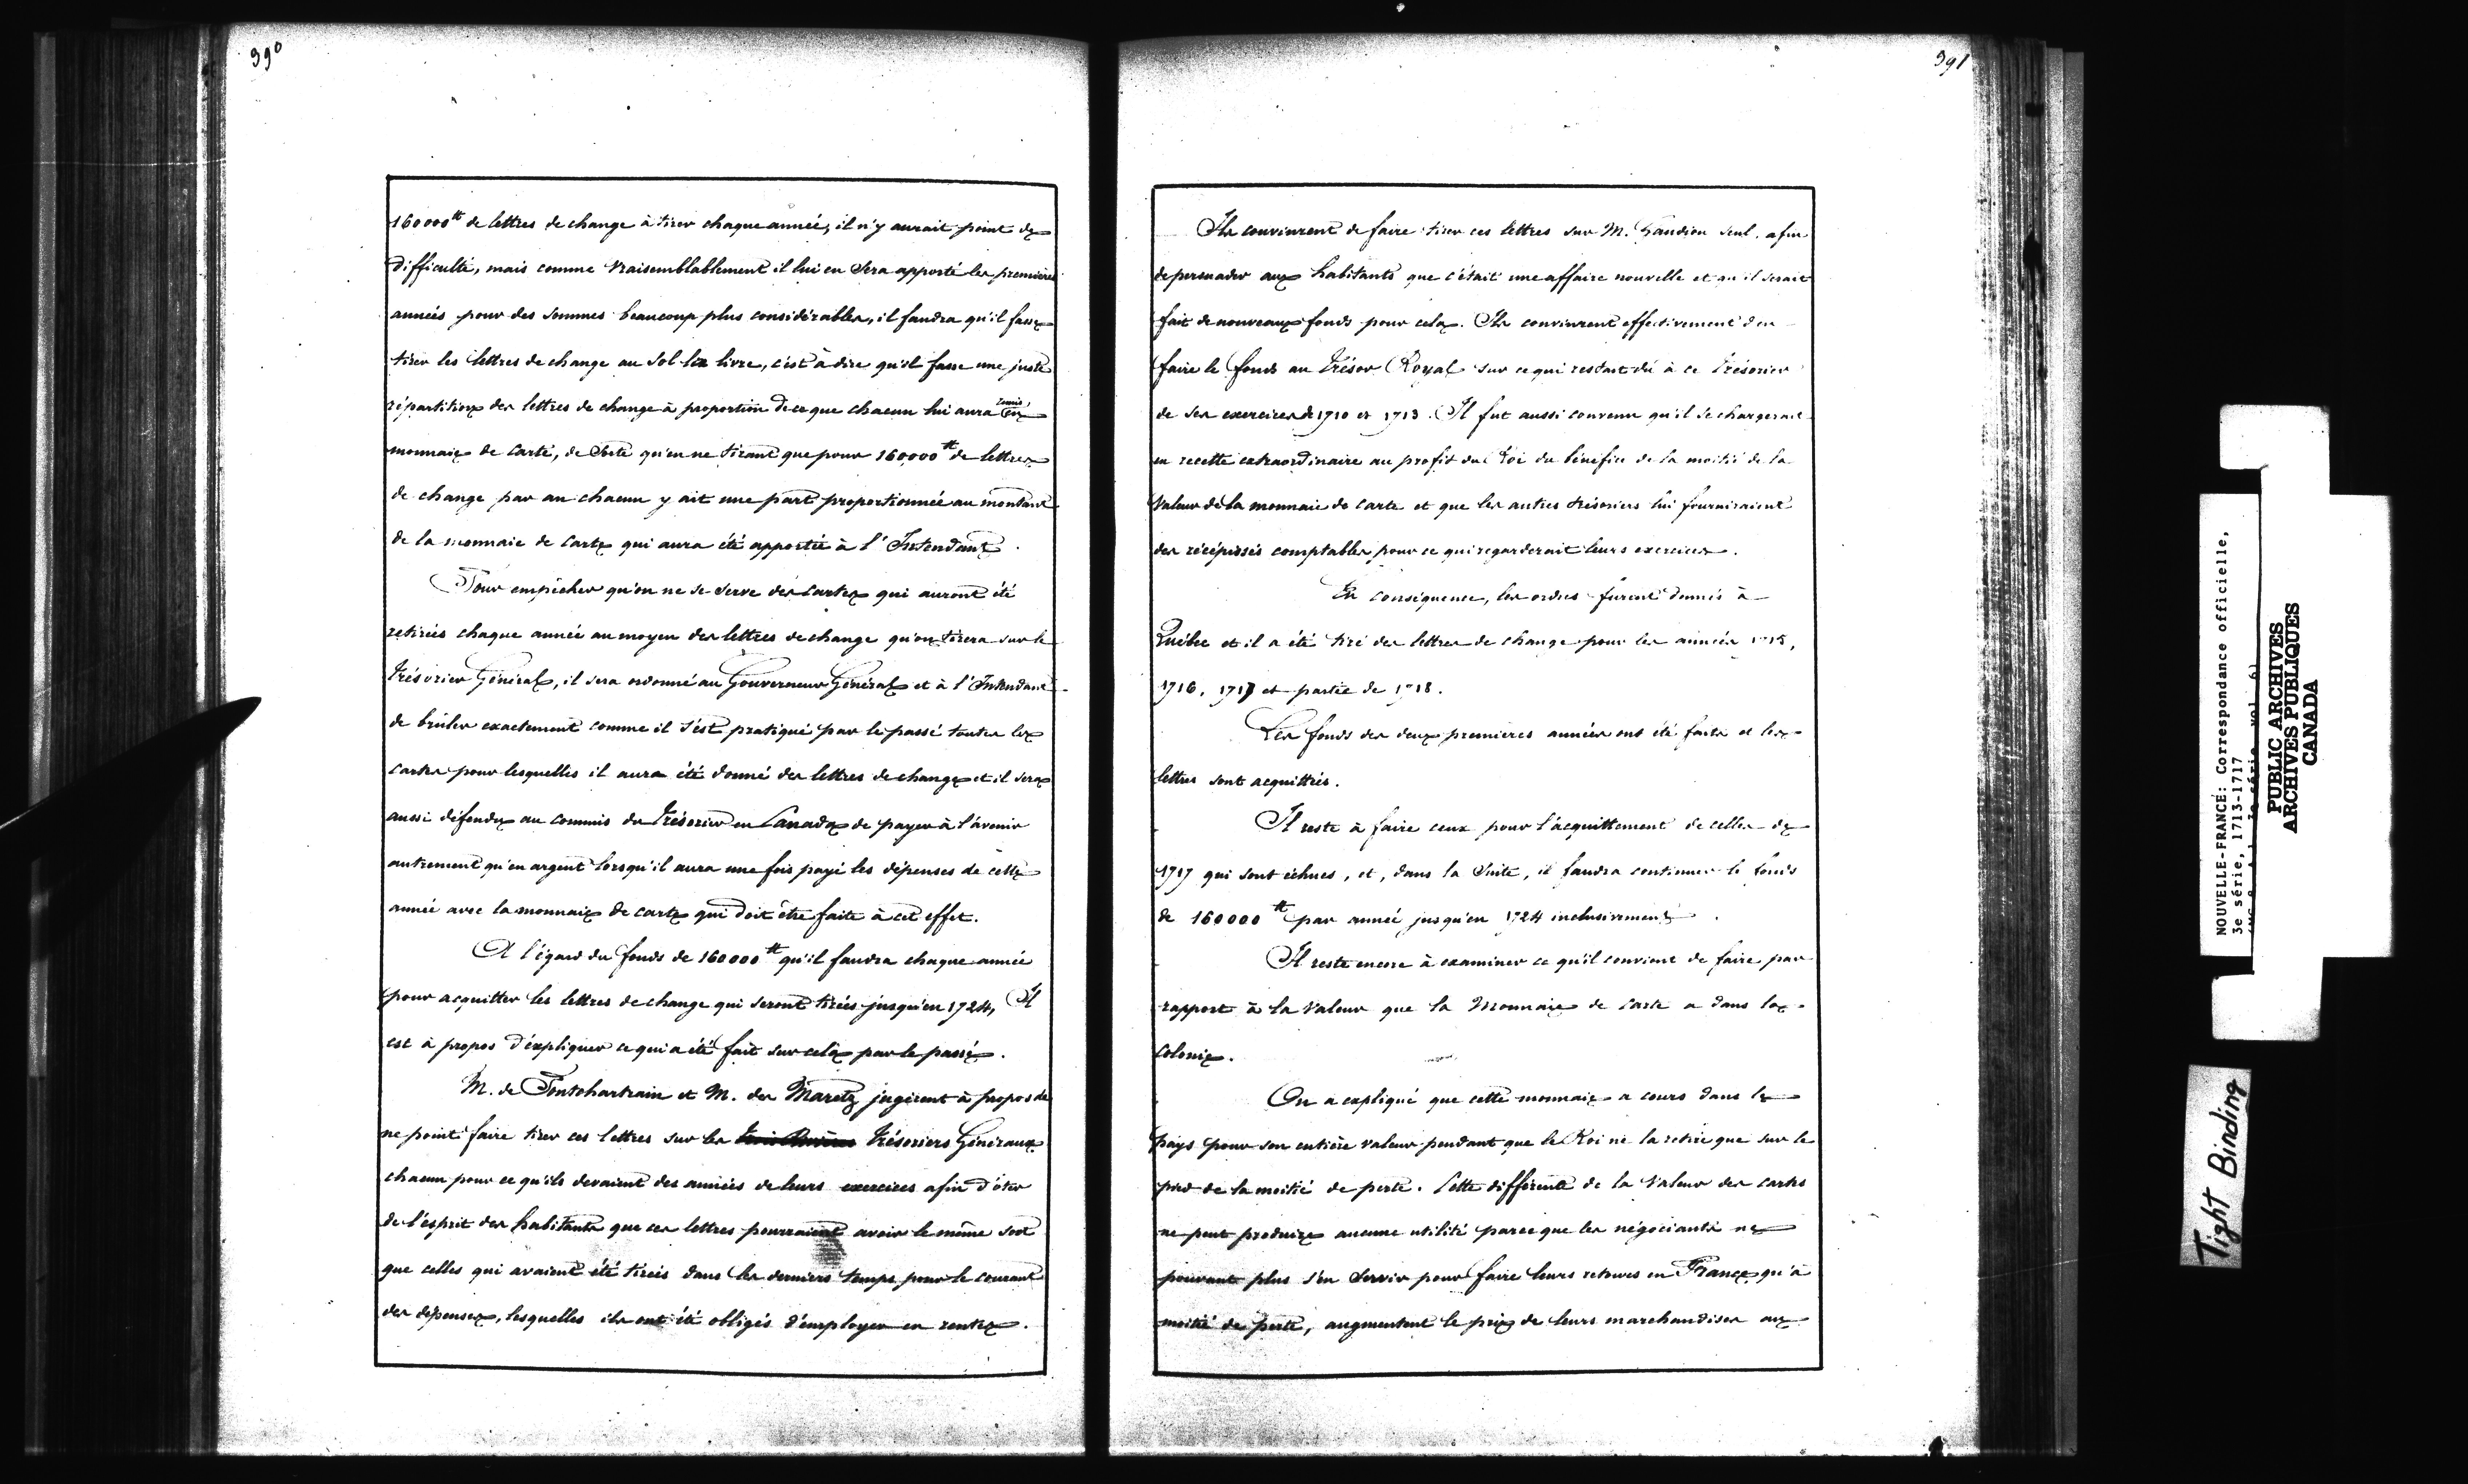 390
160000tt de lettres de change à tirer chaque année, il n'y aurait point de
difficulté, mais comme vraisemblablement il lui en sera apporté les premières
années pour des sommes beaucoup plus considérables, il faudra qu'il fasse
tirer les lettres de change au sol la livre, c'est à dire qu'il fasse une juste
répartition des lettres de change à proportion de ce que chacun lui aura remis en
monnaie de carte, de sorte qu'en ne tirant que pour 160000tt de lettres
de change par an chacun y ait une part proportionnée au montant
de la monnaie de carte qui aura été apportée à l'Intendant.
Pour empêcher qu'on ne se serve des cartes qui auront été
retirées chaque année au moyen des lettres de change qu'on tirera sur le
Trésorier Général, il sera ordonné au Gouverneur Général et à l'Intendant
de brûler exactement comme il s'est pratiqué par le passé toutes les
cartes pour lesquelles il aura été donné des lettres de change et il sera
aussi défendu au commis du Trésorier en Canada de payer à l'avenir
autrement qu'en argent lorsqu'il aura une fois payé les dépenses de cette
année avec la monnaie de carte qui doit être faite à cet effet.
A l'égard du fonds de 160000tt qu'il faudra chaque année
pour acquitter les lettres de change qui seront tirées jusqu'en 1724, Il
est à propos d'expliquer ce qui a été fait sur cela par le passé.
M. de Pontchartrain et M. des Maretz jugèrent à propos de
ne point faire tirer ces lettres sur les Trésoriers Généraux
chacun pour ce qu'ils devaient des années de leurs exercices afin d'ôter
de l'esprit des habitants que ces lettres pourraient avoir le même sort
que celles qui avaient été tirées dans les derniers temps pour le courant
des dépenses, lesquelles ils ont été obligés d'employer en rentes.
391
Ils convinrent de faire tirer ces lettres sur M. Gaudion seul, afin
de persuader aux habitants que c'était une affaire nouvelle et qu'il serait
fait de nouveaux fonds pour cela. Ils convinrent effectivement d'en
faire le fonds au Trésor Royal sur ce qui restait dû à ce Trésorier
de ses exercices de 1710 et 1713. Il fut aussi convenu qu'il se chargerait
en recette extraordinaire au profit du Roi du bénéfice de la moitié de la
valeur de la monnaie de carte et que les autres trésoriers lui fourniraient
des récépissés comptables pour ce qui regarderait leurs exercices.
En conséquence, les ordres furent donnés à
Québec et il a été tiré des lettres de change pour les années 1715,
1716, 1717 et partie de 1718.
Les fonds des deux premières années ont été faits et les
lettres sont acquittées.
Il reste à faire ceux pour l'acquittement de celles de
1717 qui sont échues, et, dans la suite, il faudra continuer le fonds
de 160000tt par année jusqu'en 1724 inclusivement.
Il reste encore à examiner ce qu'il convient de faire par
rapport à la valeur que la Monnaie de carte a dans la
colonie.
On a expliqué que cette monnaie a cours dans le
pays pour son entière valeur pendant que le Roi ne la retire que sur le
pied de la moitié de perte. Cette différente de la valeur des cartes
ne peut produire aucune utilité parce que les négociants ne
pouvant plus s'en servir pour faire leurs retours en France qu'à
moitié de perte, augmentent le prix de leurs marchandises aux
NOUVELLE-FRANCE: Correspondance officielle,
3e série, 1713-1717
PUBLIC ARCHIVES
ARCHIVES PUBLIQUES
CANADA
Tight Binding